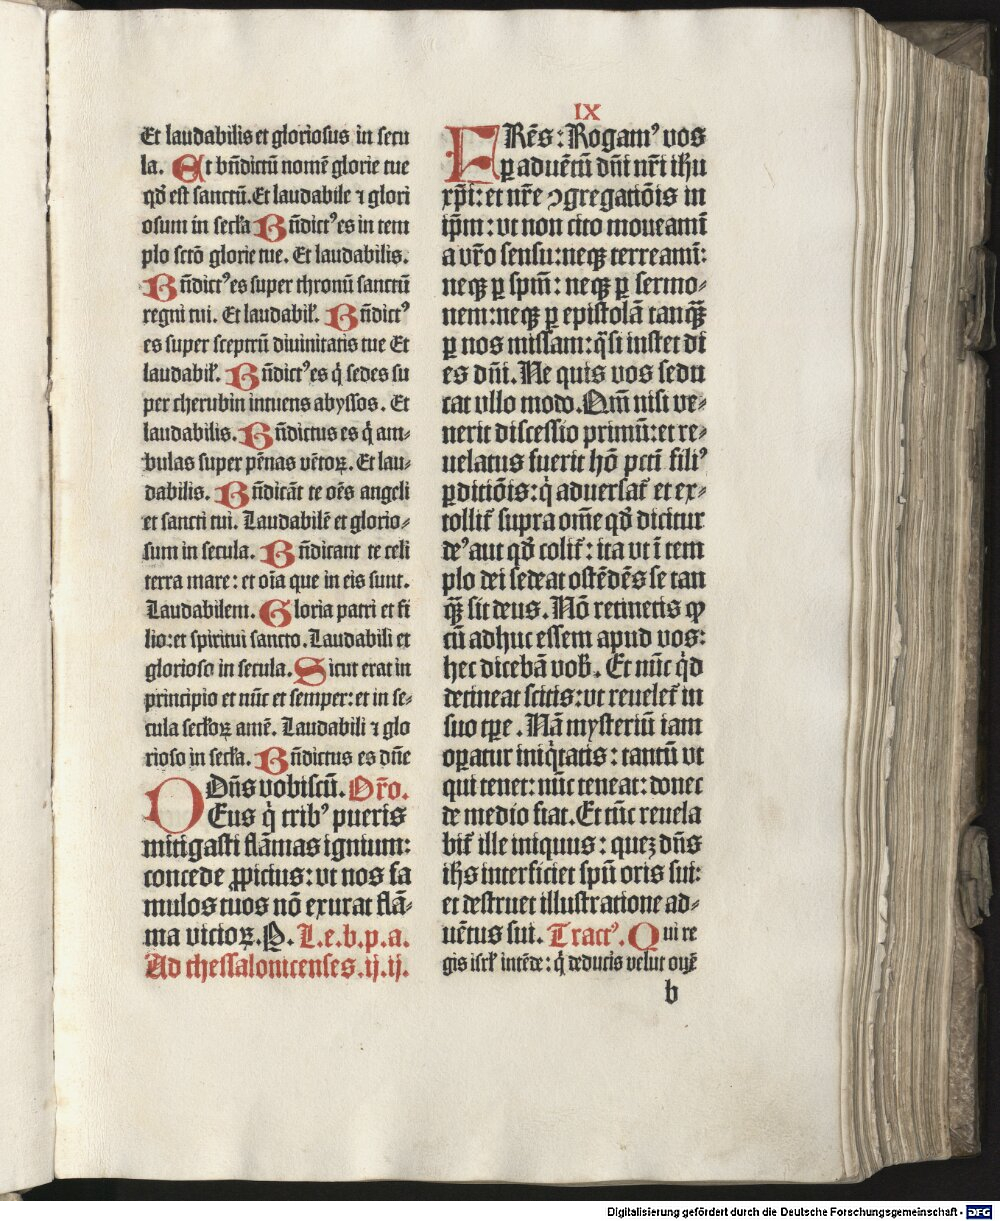 IX
Et laudabilis et gloriosus in secu
la. Et bñdictũ nomẽ glorie tue
qđ est sanctũ. Et laudabile ⁊ glori
osum in secła Bñdictꝰ es in tem
plo sctõ glorie tue. Et laudabilis.
Bñdictꝰ es super thronũ sanctũ
regni tui. Et laudabił. Bñdictꝰ
es super sceptrũ diuinitatis tue Et
laudabił. Bñdictꝰ es q̇ sedes su
per cherubin intuens abyssos. Et
laudabilis. Bñdictus es q̇ am⸗
bulas super pẽnas vẽtoꝝ. Et lau⸗
dabilis. Bñdicãt te oẽs angeli
et sancti tui. Laudabilẽ et glorio⸗
sum in secula. Bñdicant te celi
terra mare: et oĩa que in eis sunt.
Laudabilem. Gloria patri et fi
lio: et spiritui sancto. Laudabili et
glorioso in secula. Sicut erat in
principio et nũc et semper: et in se⸗
cula secłoꝝ amẽ. Laudabili ⁊ glo
rioso in secła. Bñdictus es dñe
Dñs vobiscũ. Oro.
DEus q̇ tribꝰ pueris
mitigasti flãmas ignium:
concede ꝓpicius: vt nos fa
mulos tuos nõ exurat flã⸗
ma vicioꝝ. P. L.e.b.p.a.
Ad thessalonicenses .ij. ij.
FRẽs: Rogamꝰ vos
ꝑ aduẽtũ dñi nr̃i ihu
xp̃i: et nr̃e ꝯgregatiõis in
ip̃m: vt non cito moueamĩ
a vr̃o sensu: neqꝫ terreamĩ:
neqꝫ ꝑ spm̃: neqꝫ ꝑ sermo⸗
nem: neqꝫ ꝑ epistolã tanqꝫ̃
ꝑ nos missam: q̃si instet di
es dñi. Ne quis vos sedu
cat vllo modo. Qm̃ nisi ve⸗
nerit discessio primũ: et re⸗
uelatus fuerit hõ pctĩ filiꝰ
ꝑditiõis: q̇ aduersat̃ et ex⸗
tollit̃ supra om̃e qđ dicitur
deꝰ aut qđ colit̃: ita vt ĩ tem
plo dei sedeat ostẽdẽs se tan
qꝫ̃ sit deus. Nõ retinetis ꝙ
cũ adhuc essem apud vos:
hec dicebã vob̃. Et nũc q̇d
detineat scitis: vt reuelet̃ in
suo tꝑe. Nã mysteriũ iam
oꝑatur iniq̇tatis: tantũ vt
qui tenet: nũc teneat: donec
de medio fiat. Et tũc reuela
bit̃ ille iniquus: queꝫ dñs
ihs interficiet spũ oris sui:
et destruet illustratione ad⸗
uẽtus sui. Tractꝰ. Qui re
gis isrł intẽde: q̇ deducis velut ouẽ
b
Digitalisierung gefördert durch die Deutsche Forschungsgemeinschaft - DFG